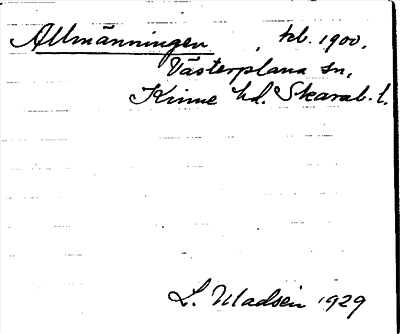 Allmänningen, trb. 1900.
Västerplana sn,
Kinne hd. Skarab. l.
L. Madsén 1929